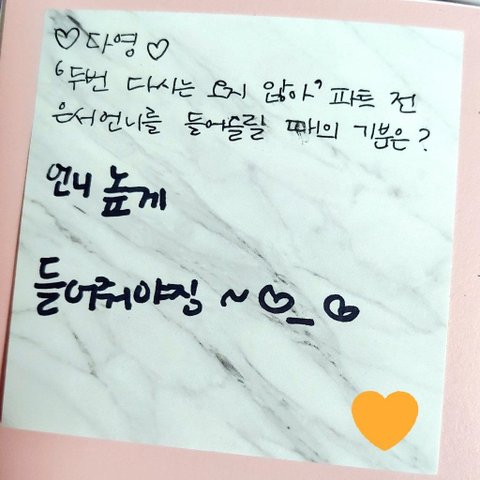 ♡다영♡
'두번 다시는 오지 않아' 파트 전
은서언니를 들어올릴 때의 기분은?
언니 높게
들어줘야징 ~♡_♡